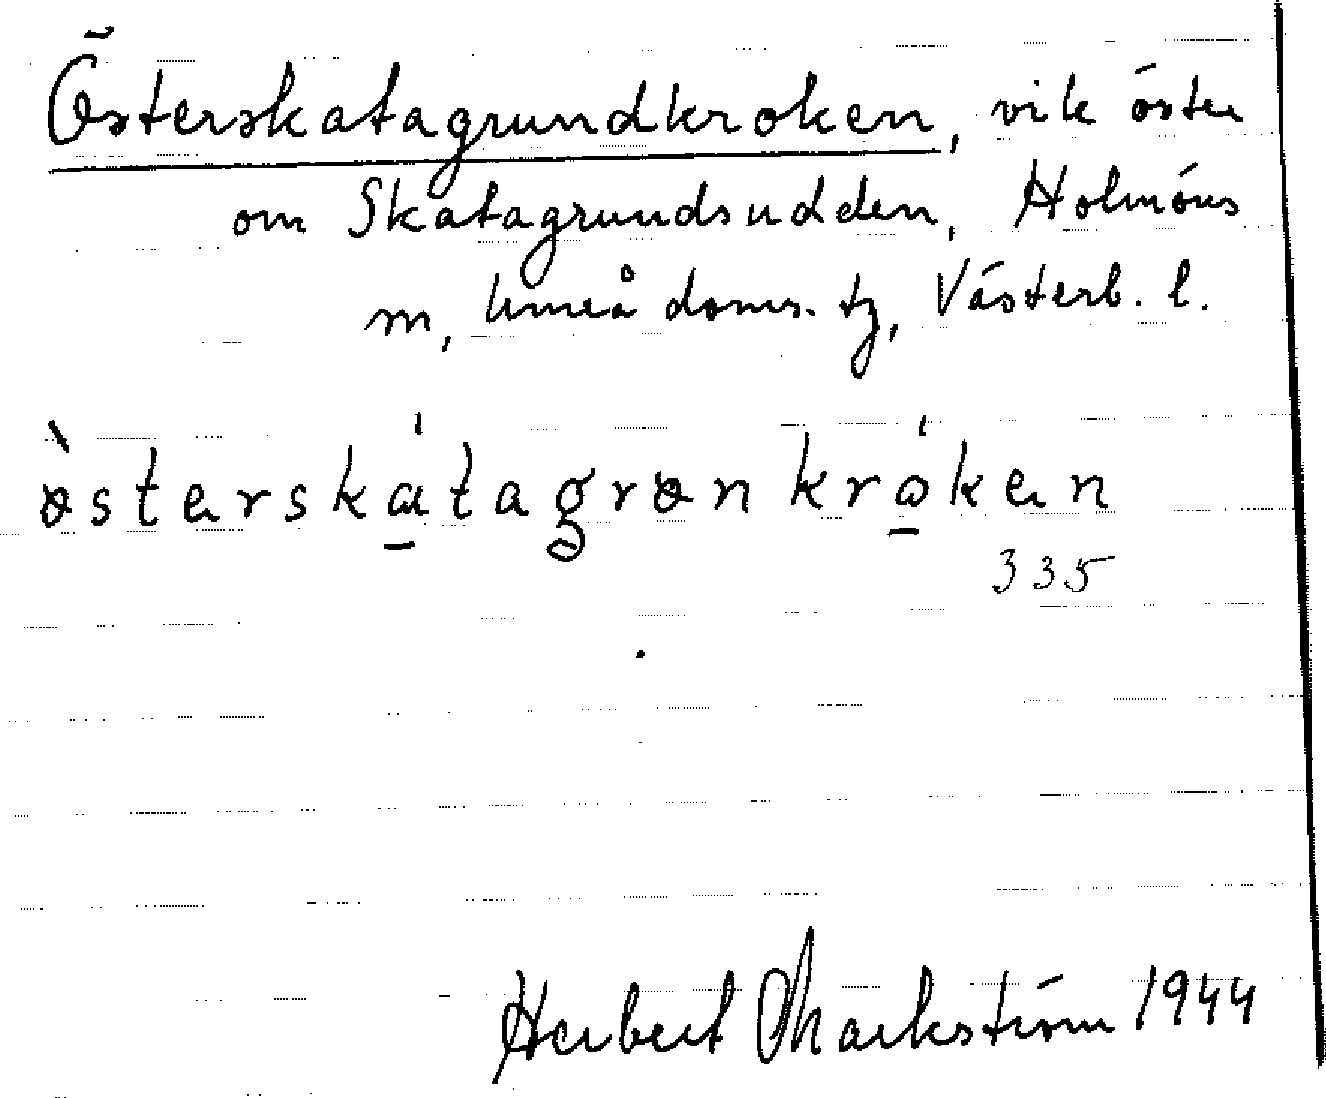 Österskatagrundkroken, vik öster
om Skatagrundsudden, Holmöns
m, Umeå doms. tg, Västerb. l.
ɵ̀sterskát̠agrɵnkrók̠en
335
Herbert Markström 1944